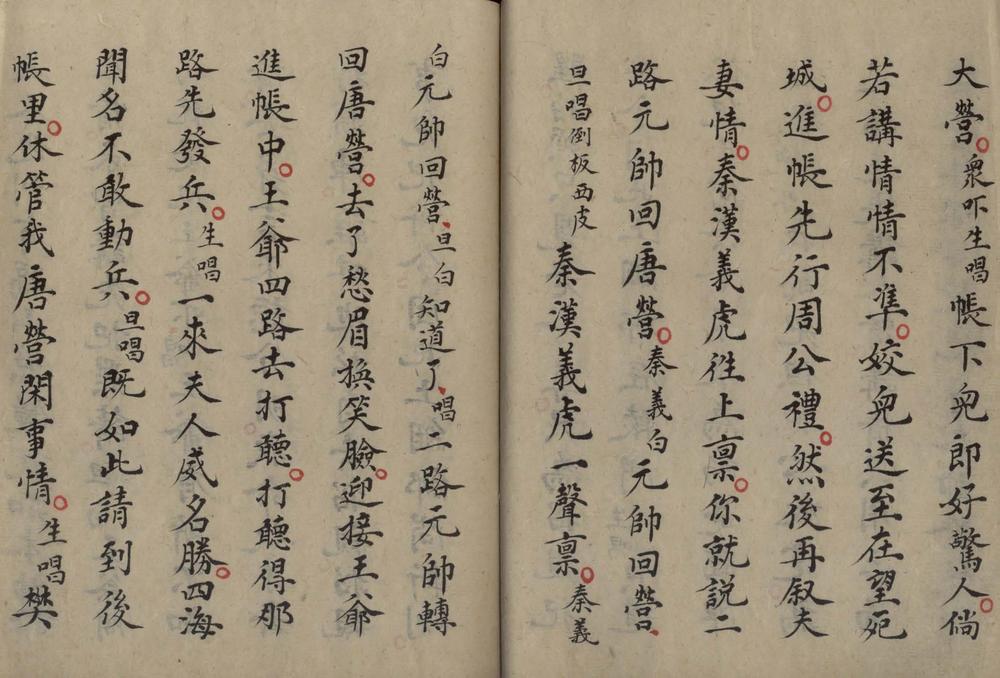 大營。衆吓生唱帳下皃即好驚人。倘
若講情情不準。姣皃送至在望死
城。進帳先行周公禮。然後再叙夫
妻情。秦漢義虎徃上禀。你就説二
路元帥回唐營。秦義白元帥回營、
旦唱倒板西皮秦漢義虎一聲禀。秦義
白元帥回營、旦白知道了、唱二路元帥轉
回唐營。去了愁眉换笑臉。迎接王爺
進帳中。王爺四路去打聽。打聽得那
路先發兵。生唱一來夫人威名勝。四海
聞名不敢動兵。旦唱既如此請到後
帳里。休管我唐營閑事情。生唱樊